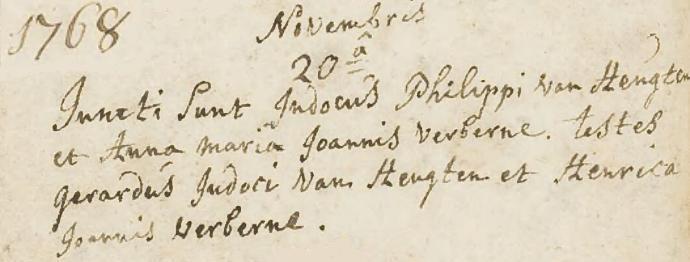 1768
Novembris
20ª
Juncti Sunt Judocus Philippi van Heugten
et Anna maria Joannis verberne. testes
gerardus Judoci van Heugten et Henrica
Joannis verberne.